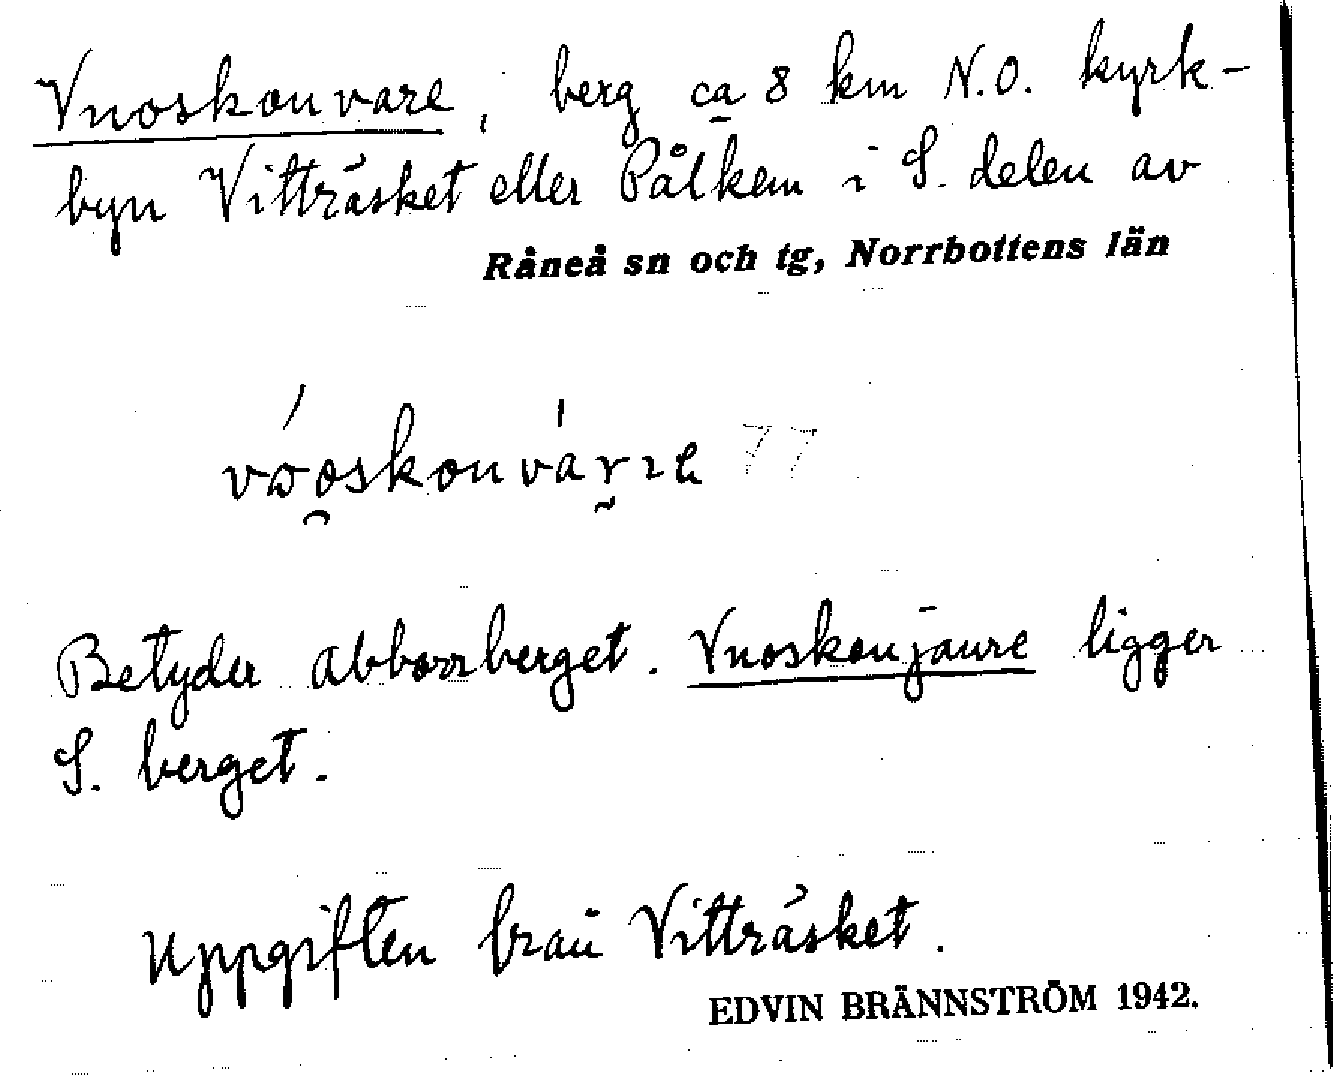 Vuoskonvare, berg ca 8 km N.O. kyrk-
byn Vitträsket eller Pålkem i S. delen av
Råneå sn och tg, Norrbottens län
Betyder abborrberget. Vuoskonjaure ligger
S. berget.
Uppgiften från Vitträsket.
EDVIN BRÄNNSTRÖM 1942.